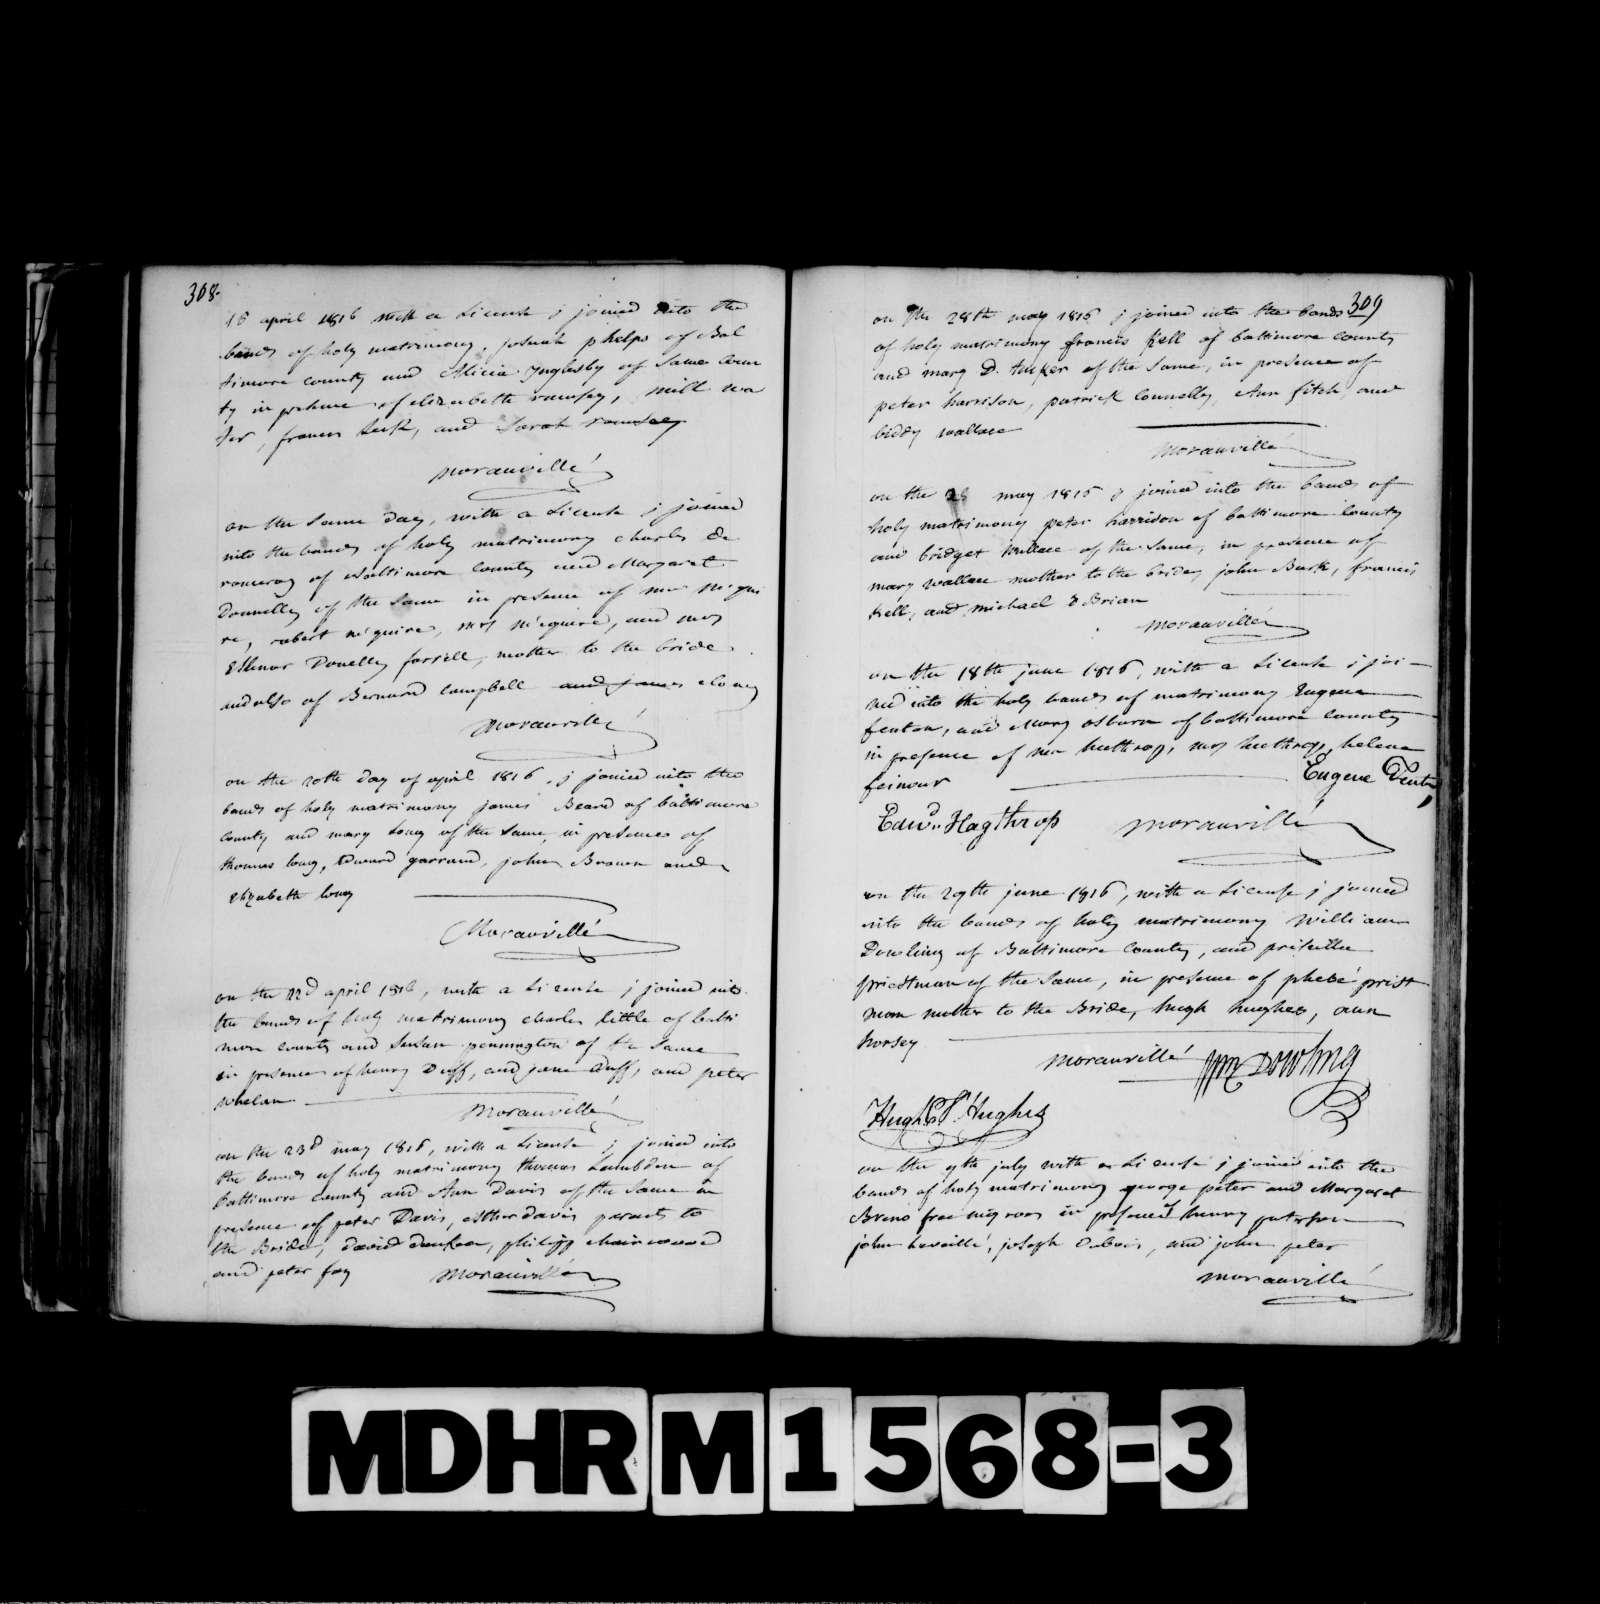 308.
18 april 1816 with a License j joined into the
bands of holy matrimony, josuah phelps of Bal
timore county and Alicia Inglesby of Same Coun
ty in presence of elizabeth ramsey, will wa
ter, frances and Sarah ramsey
moranvillé
on the Same day, with a License j joined
into the bands of holy matrimony charles de
romeray of Baltimore County and Margaret
Donnelly of the Same in presence of mr Mcgui
re, robert mcguire, mrs Mcguire, and mrs
Ellenor Donelly farrell, mother to the bride
and also of Bernard campbell and james clony
Moranvillé
on the 20th day of april 1816, j joined into the
bands of holy matrimony james Beard of baltimore
county and mary Long of the Same, in presence of
thomas long, Edward garraud, john Brown and
Elizabeth long
Moranvillé
on the 22d april 1816, with a License j joined into
the bands of holy matrimony charles little of balti
more county and Susan pennington of the Same
in presence of henry Duff, and jane Duff, and peter
whelan
Moranvillé
on the 23d may 1816, with a License, j joined into
the bands of holy matrimony thomas Lambden of
baltimore county and Ann Davis of the Same in
presence of peter Davis, esther davis parents to
the Bride, david philipp
and peter foy moranvillé
309
on the 28th may 1816 j joined into the bands
of holy matrimony francis Kell of baltimore county
and mary D. tucker of the Same, in presence of
peter harrison, patrick Connelly, Ann fitch and
biddy wallace
Moranvillé
on the 28 may 1816 j joined into the bands of
holy matrimony peter harrison of baltimore county
and bridget wallace of the Same, in presence of
mary wallace mother to the bride, john Burk, francis
Kell, and michael o Brian
moranvillé
on the 18th june 1816, with a License j joi-
ned into the holy bands of matrimony Eugene
fenton, and Mary osburn of baltimore County
in presence of mr hucthrop, mrs hucthrop, helena
feinour Eugene Fenton
Edwd. Hagthrop moranvillé
on the 29th june 1816, with a License j joined
into the bands of holy matrimony William
Dowling of Baltimore County, and priscilla
priestman of the Same, in presence of phebé prist
man mother to the Bride, hugh hughes, ann
horsey
moranvillé Wm Dowling
Hugh Hughes
on the 9th july with a License j joined into the
bands of holy matrimony george peter and Margaret
Breno free nigroes in presence of henry paterson
john Leveillé, joseph Dubois, and john peter
moranvillé
MDHR M 1568-3